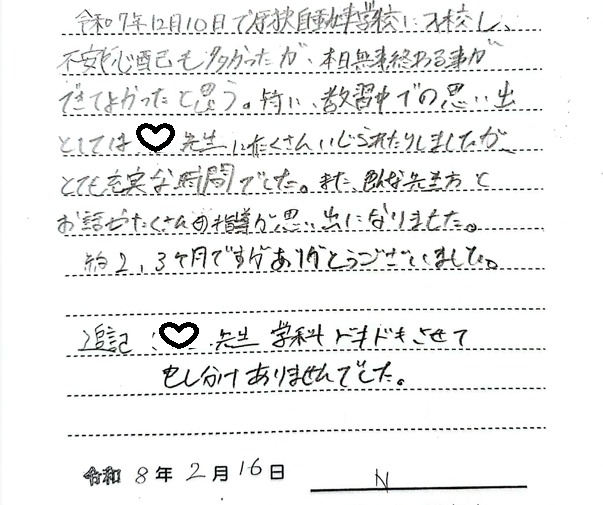 令和7年12月10日で原狭自動車学校に入校し、
不安や心配も多かったが、本日無事終わる事が
できてよかったと思う。特に、教習中での思い出
としては♡先生にたくさんいじられたりしましたが
とても充実な時間でした。また、色んな先生方と
お話がたくさんの指導が思い出になりました。
約2,3ヶ月ですがありがとうございました。
追記:♡先生 学科ドキドキさせて
もし分けありませんでした。
令和8年2月16日 N